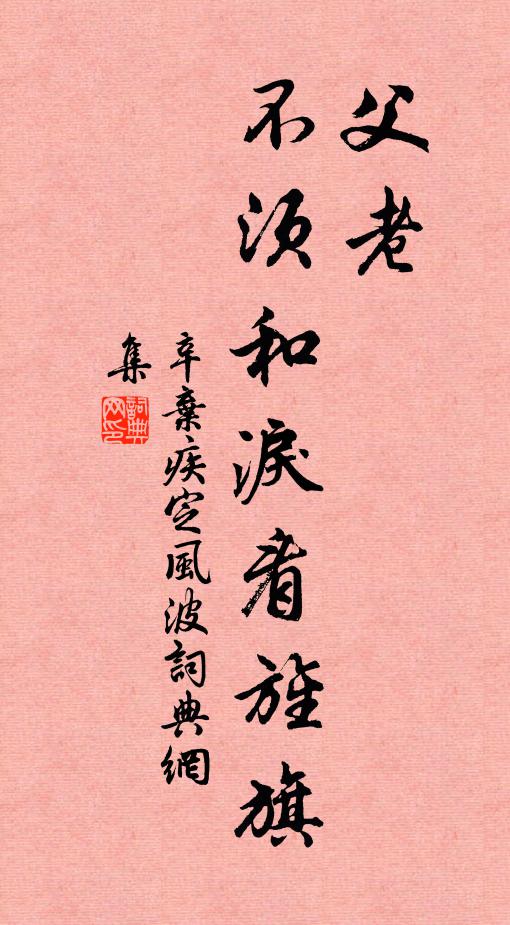 父老
不须和淚看旌旗
辛棄疾定風波詞典網
集
詞典
网印